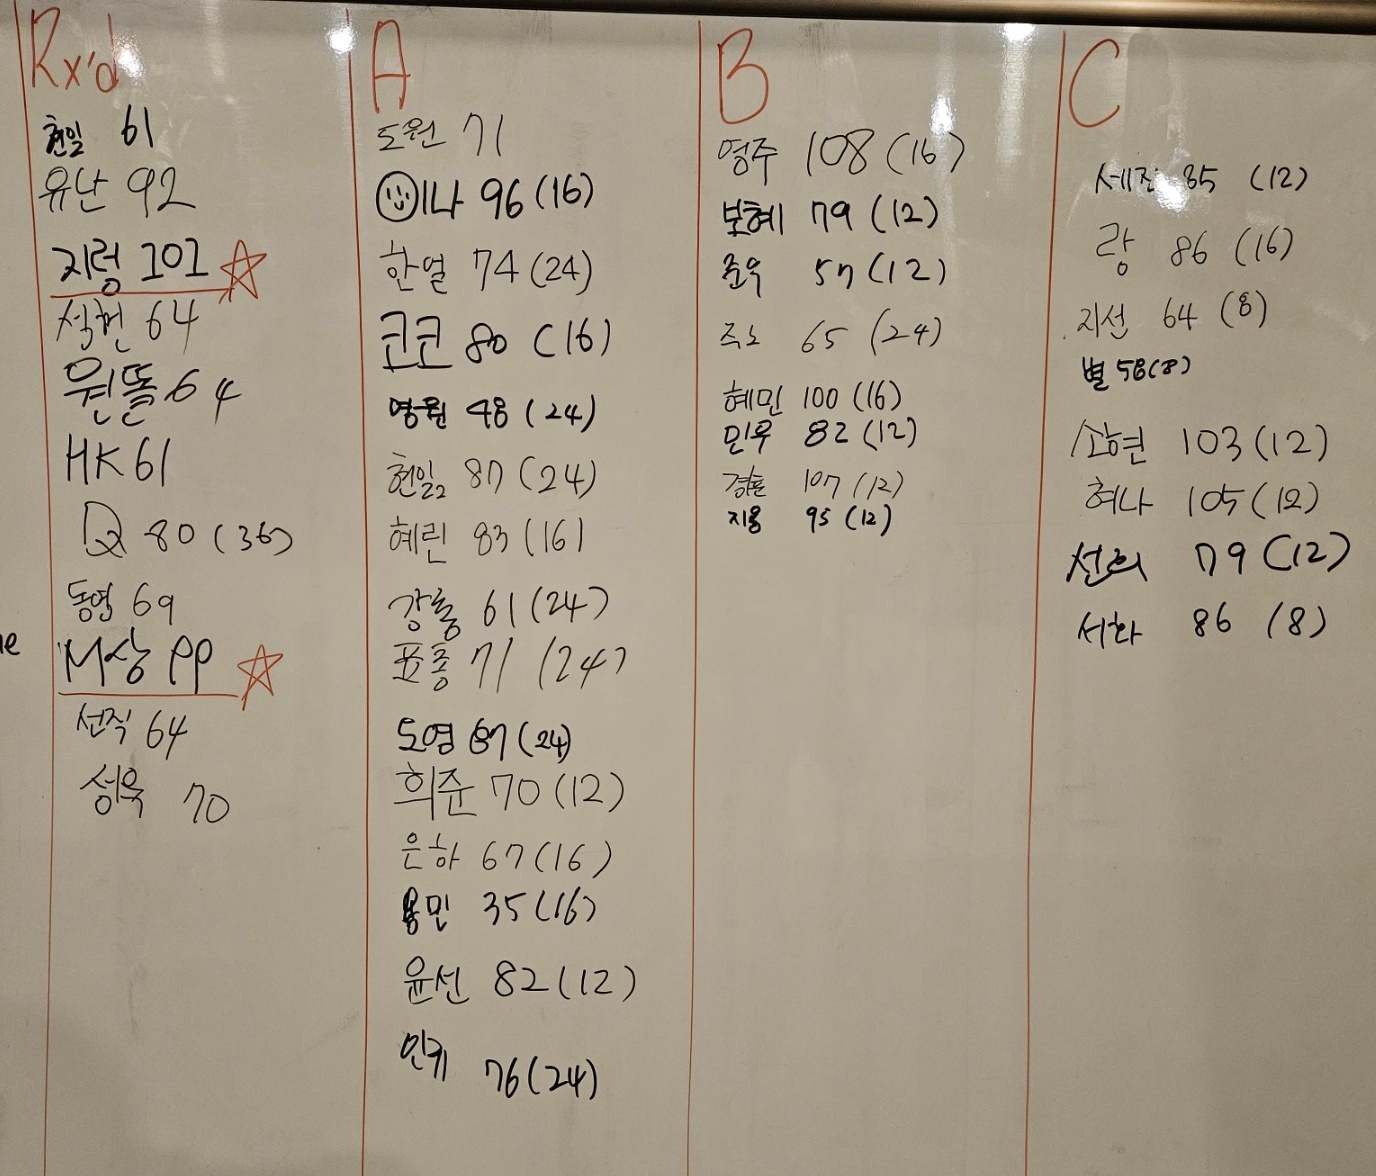 Rx'd
현일 61
유난 92
지렁 101
석현 64
원똘 64
HK 61
Q 80 (36)
동엽 69
M상 99
선직 64
성욱 70
A
도원 71
이나 96 (16)
한얼 74 (24)
코코 80 (16)
영원 48 (24)
현일2 87 (24)
혜린 83 (16)
강훈 61 (24)
표종 71 (24)
도영 67 (24)
희준 70 (12)
은하 67 (16)
용민 35 (16)
윤선 82 (12)
인퀴 76 (24)
B
영주 108 (16)
보혜 79 (12)
준우 57 (12)
주노 65 (24)
혜민 100 (16)
민우 82 (12)
경훈 107 (12)
지용 95 (12)
C
85 (12)
랑 86 (16)
지선 64 (8)
별 58 (8)
소현 103 (12)
허나 105 (12)
선희 79 (12)
서화 86 (8)